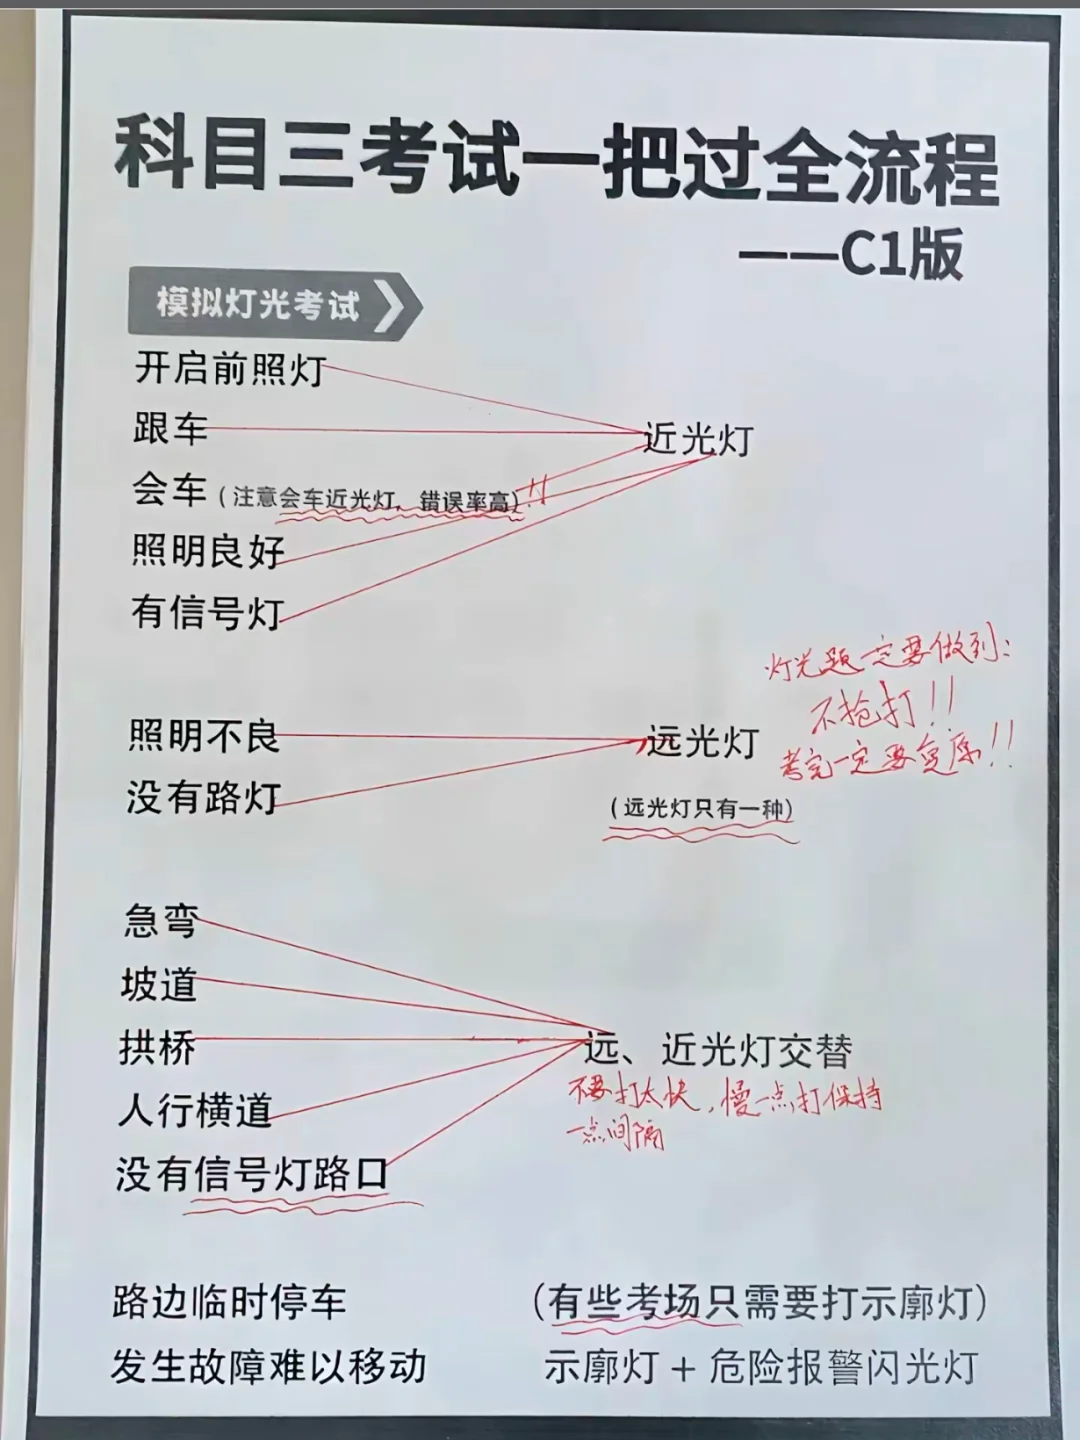 科目三考试一把过全流程
——C1版
模拟灯光考试
开启前照灯
跟车
近光灯
会车（注意会车近光灯，错误率高）!!
照明良好
有信号灯
灯光题一定要做到：
不抢打!!
考完一定要复原!!
照明不良
远光灯
没有路灯
（远光灯只有一种）
急弯
坡道
拱桥
远、近光灯交替
不要打太快，慢一点打保持
一点间隔
人行横道
没有信号灯路口
路边临时停车 （有些考场只需要打示廓灯）
发生故障难以移动 示廓灯 + 危险报警闪光灯